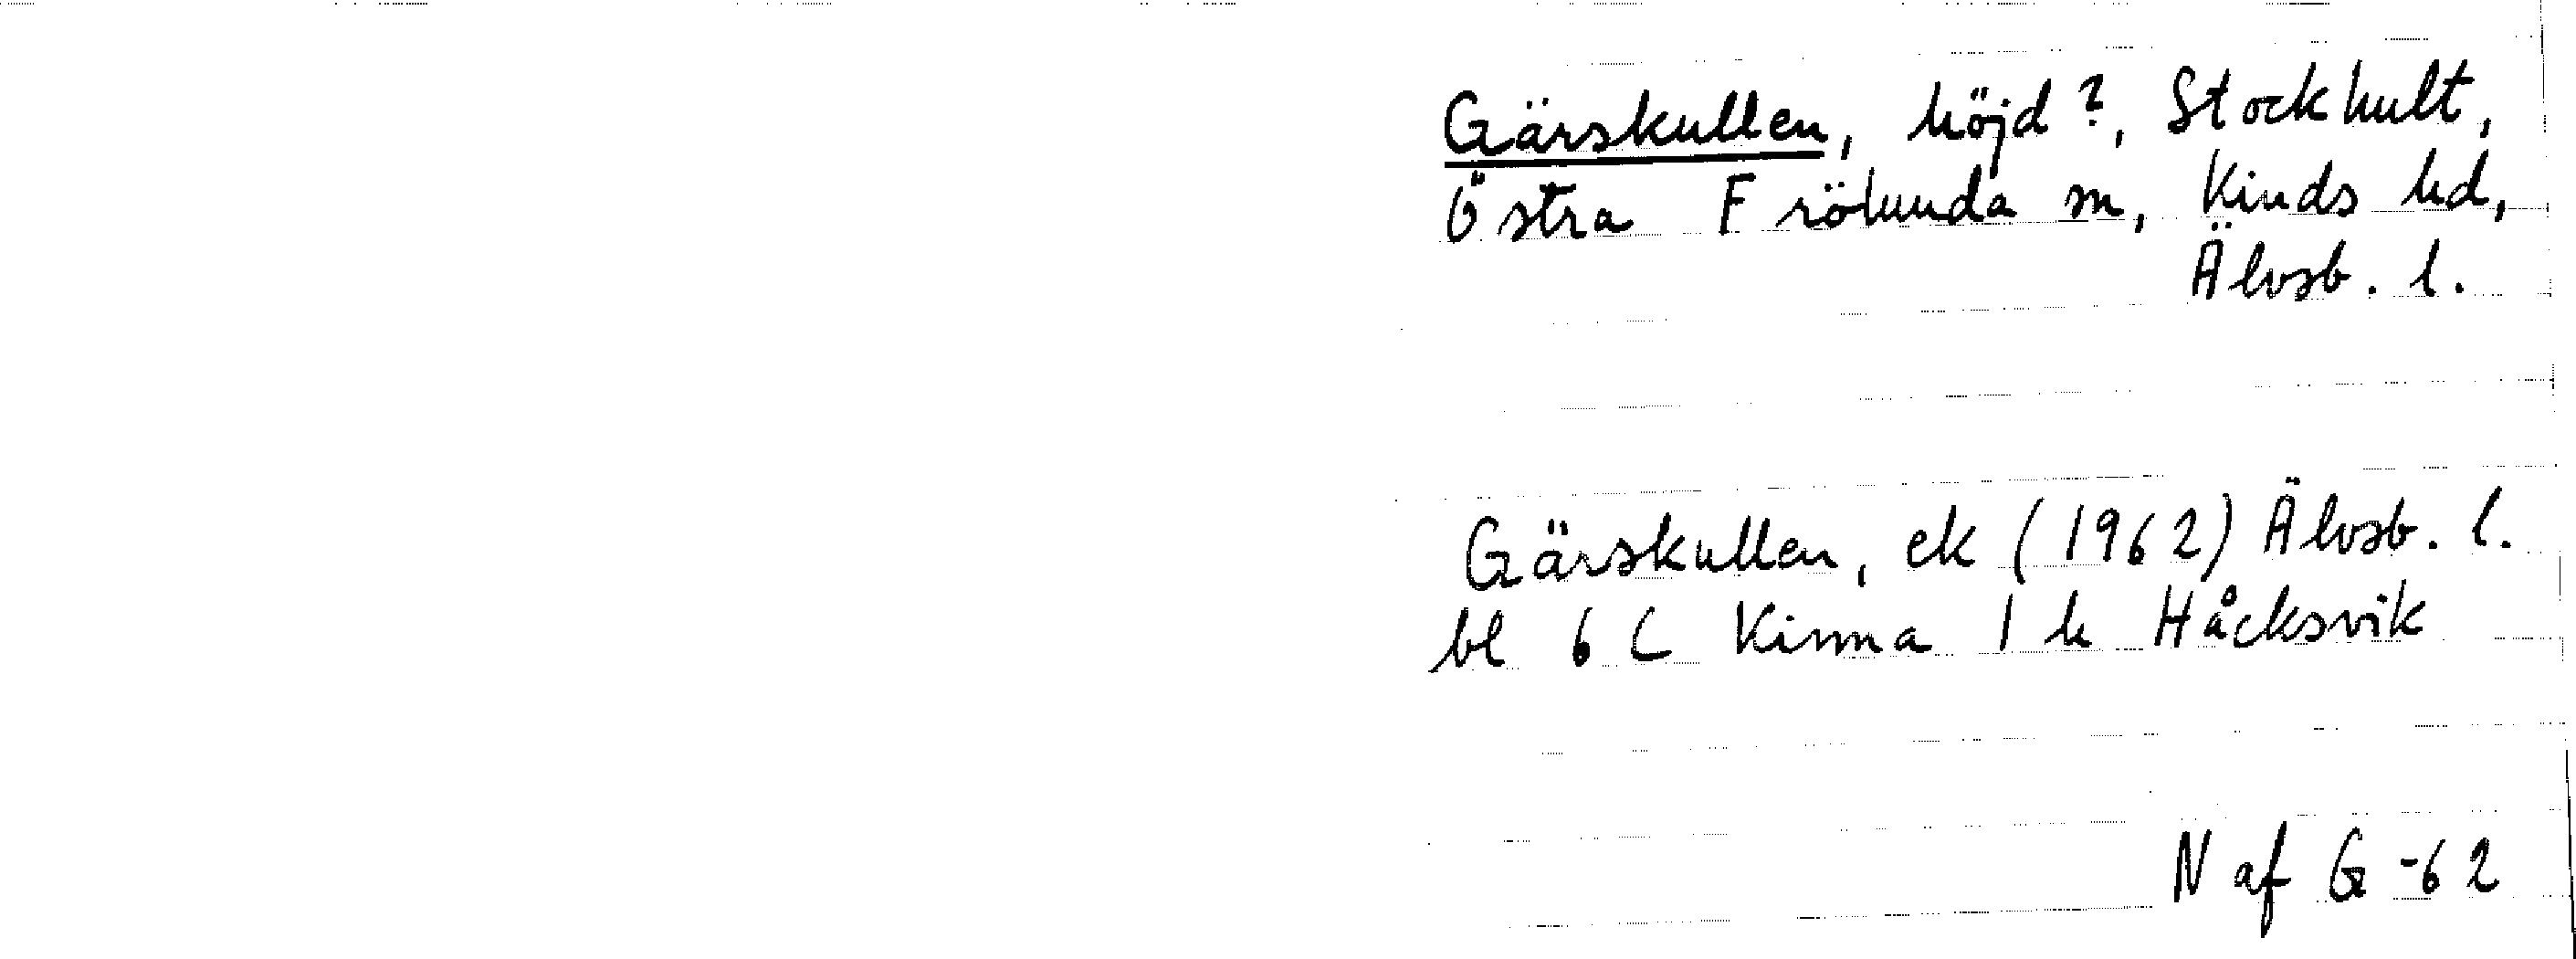 Gärskullen, höjd?, Stockhult,
Östra Frölunda sn, Kinds hd,
Älvsb. l.
Gärskullen, ek (1962) Älvsb. l.
bl 6 C Kinna 1 h Håcksvik
N af G -62